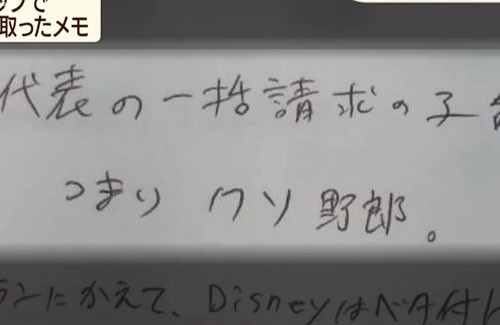 ップで
取ったメモ
代表の一括請求の子
つまり クソ野郎。
ランにかえて、Disneyはベタ付け